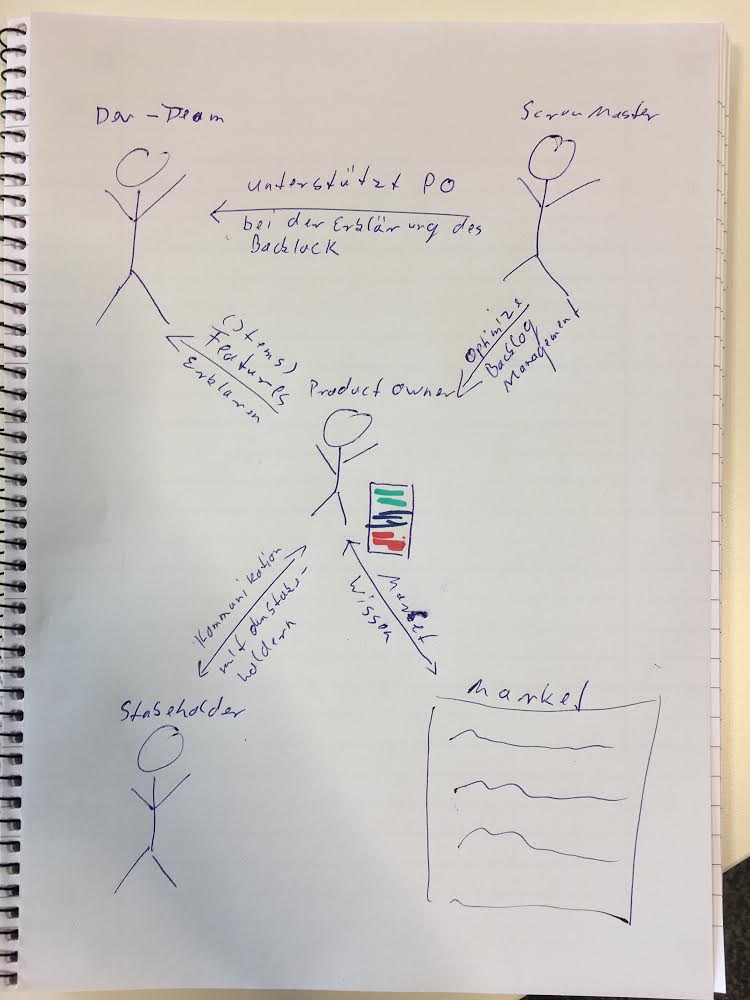 Dev-Team
Scrum Master
unterstützt PO
bei der Erklärung des
Backlock
(Items)
Features
Erklären
Optimize
Backlog
Management
Product Owner
Kommunikation
mit den Stake-
holdern
Market
Wissen
Stakeholder
Market